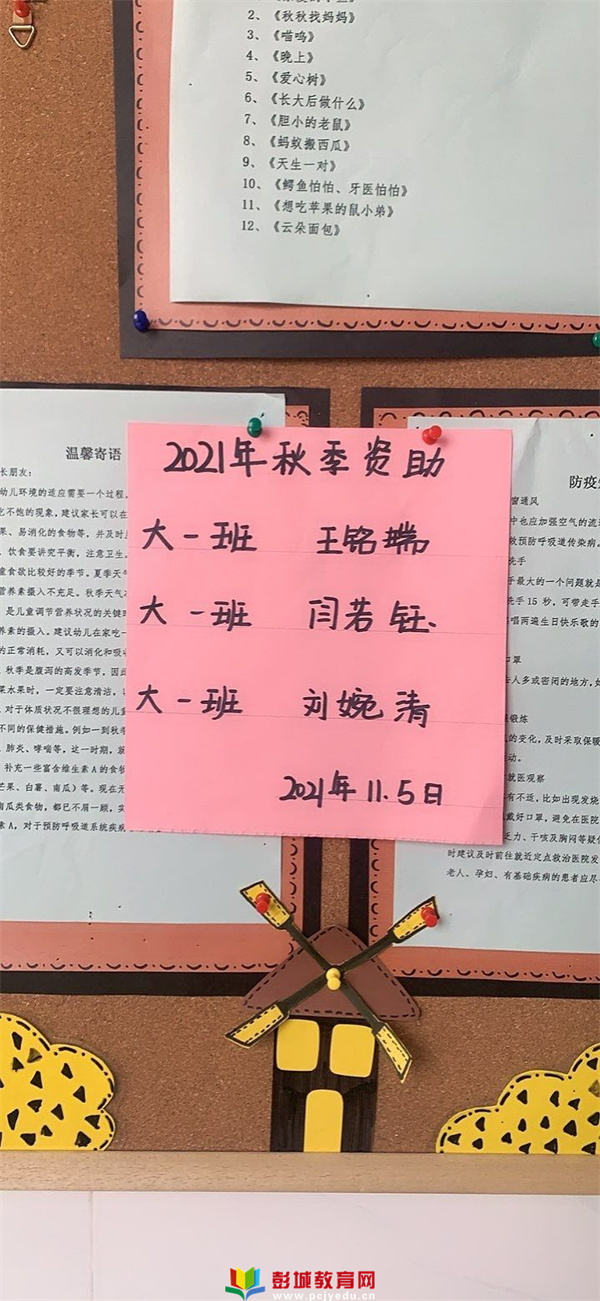 2、《秋秋找妈妈》
3、《喵呜》
4、《晚上》
5、《爱心树》
6、《长大后做什么》
7、《胆小的老鼠》
8、《蚂蚁搬西瓜》
9、《天生一对》
10、《鳄鱼怕怕、牙医怕怕》
11、《想吃苹果的鼠小弟》
12、《云朵面包》
温馨寄语
长朋友：
幼儿环境的适应需要一个过程，
吃不饱的现象，建议家长可以在
果、易消化的食物等，并及时
，饮食要讲究平衡，注意卫生。
童食欲比较好的季节。夏季天气
营养素摄入不充足。秋季天气凉
，是儿童调节营养状况的关键时
养素的摄入。建议幼儿在家吃一
的正常消耗，又可以消化和吸
，秋季是腹泻的高发季节，因此
果水果时，一定要注意清洁，
，对于体质状况不很理想的儿童
不同的保健措施。例如一到秋季
、肺炎、哮喘等，这一时期，就
，补充一些富含维生素A的食物
芒果、白薯、南瓜）等。现在无
南瓜类食物，都已不屑一顾，实
素A，对于预防呼吸道系统疾病
2021年秋季资助
大一班 王铭瑞
大一班 闫若钰
大一班 刘婉清
2021年11.5日
防疫
窗通风
中也应加强空气的流
效预防呼吸道传染病。
先手
手最大的一个问题就是
洗手15秒，可带走手
唱两遍生日快乐歌的
口罩
去人多或密闭的地方，如
锻炼
的变化，及时采取保暖
动。
就医观察
有不适，比如出现发烧
戴好口罩，避免在医院
乏力、干咳及胸闷等疑似
时建议及时前往就近定点救治医院发
老人、孕妇、有基础疾病的患者应尽
彭城教育网
www.pcjyedu.cn